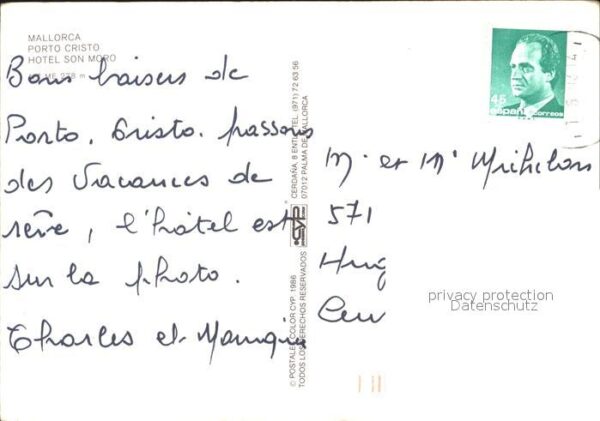 MALLORCA
PORTO CRISTO
HOTEL SON MORO
Bons baisers de
Porto. Cristo. passons
des vacances de
rêve, l'hôtel est
sur la photo.
Charles et
CERDAÑA, 8 ENTLO. TEL. (971) 72 63 56
07012 PALMA DE MALLORCA
CYP
© POSTALES COLOR CYP, 1986
TODOS LOS DERECHOS RESERVADOS
45
españa correos
M. et Me
571
privacy protection
Datenschutz